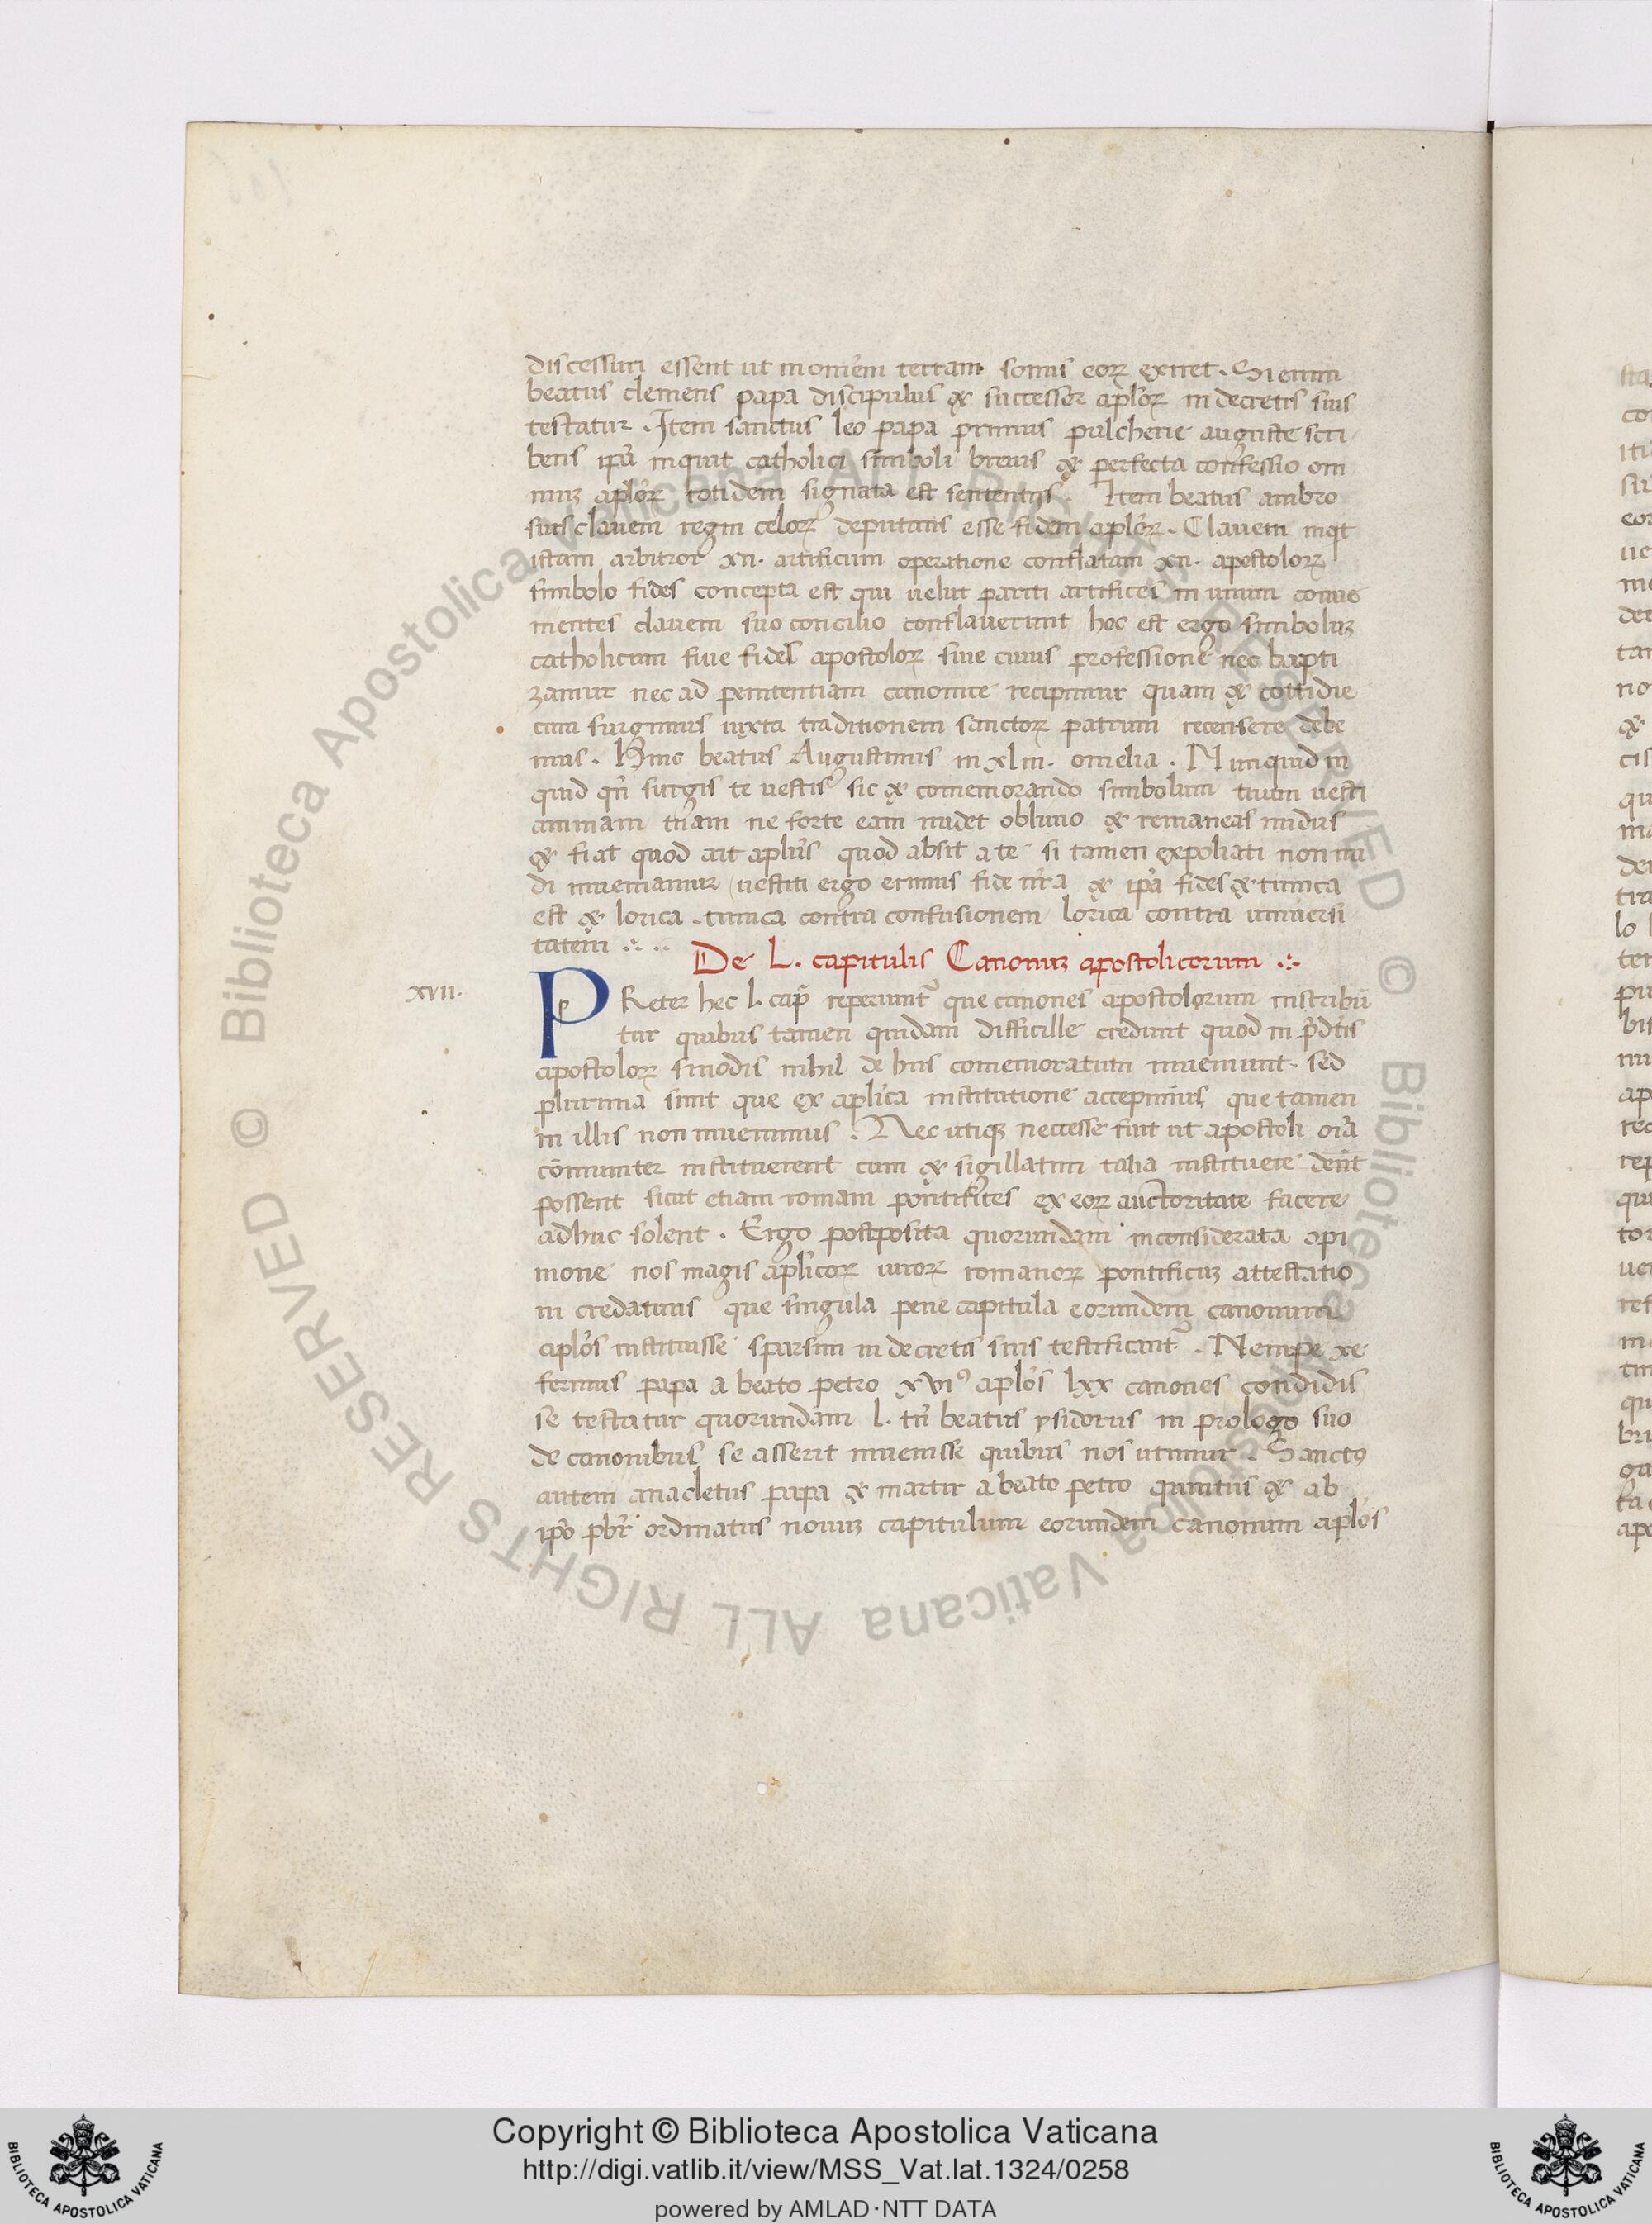 discessuri essent ut in omnem terram sonus eoꝝ exiret . Si enim
beatus clemens papa discipulus & successor aploꝝ in decretis suis
testatur . Item sanctus leo papa primus pulcherie auguste scri
bens ipſi inquit catholici simboli breuis & perfecta confessio om
niuꝫ aploꝝ totidem signata est sententijs . Item beatus ambro
sius clauem regni celoꝝ deputans esse fidem aploꝝ . Clauem inqt
istam arbitror xii . artificum operatione conflatam xii . apostoloꝝ
simbolo fides concepta est qui uelut pariti artifices in unum conue
nientes clauem suo concilio conflauerunt hoc est ergo simboluꝫ
catholicum siue fidei apostoloꝝ sine cuius professione nec bapti
zamur nec ad penitentiam canonice recipimur quam & cottidie
cum surgimus iuxta traditionem sanctoꝝ patrum recensere debe
mus . Hinc beatus Augustinus in xliii . omelia . Nunquid in
quid qñ surgis te uestis sic & comemorando simbolum tuum uesti
animam tuam ne forte eam nudet obliuio & remaneas nudus
& fiat quod ait aplus quod absit a te si tamen expoliati non nu
di inueniamur uestiti ergo erimus fide nra & ipa fides & tunica
est & lorica . tunica contra confusionem lorica contra uniuersi
tatem ..
De L . capitulis Canonuꝫ apostolicorum
xvii .
PReter hec l . cap̃ reperiunt̃ que canones apostolorum inscribũ
tur quibus tamen quidam difficille credunt quod in p̃dtis
apostoloꝝ sinodis nihil de hiis comemoratum inueniunt . sed
plurima sunt que ex aplica institutione accepimus que tamen
in illis non inuenimus . Nec utiqꝫ neccesse fuit ut apostoli oĩa
cõmuniter instituerent cum & sigillatim talia instituere
possent sicut etiam romani pontifices ex eoꝝ auctoritate facere
adhuc solent . Ergo postposita quorundam inconsiderata opi
nione nos magis aplicoꝝ uiroꝝ romanoꝝ pontificuꝫ attestatio
ni credamus que singula pene capitula eorundem canonum
aplos instituisse sparsim in decretis suis testificant̃ . Nempe xe
ferinus papa a beato petro xviꝰ aplos lxx canones condidis
se testatur quorundam l . tñ beatus ysidorus in prologo suo
de canonibus se asserit inuenisse quibus nos utimur . Sanctꝰ
autem anacletus papa & martir a beato petro quintus & ab
ipo pbr ordinatus nonuꝫ capitulum eorundem canonum aplos
Copyright © Biblioteca Apostolica Vaticana
http://digi.vatlib.it/view/MSS_Vat.lat.1324/0258
powered by AMLAD·NTT DATA
BIBLIOTECA APOSTOLICA VATICANA
BIBLIOTECA APOSTOLICA VATICANA
© Biblioteca Apostolica Vaticana ALL RIGHTS RESERVED © Biblioteca Apostolica Vaticana ALL RIGHTS RESERVED